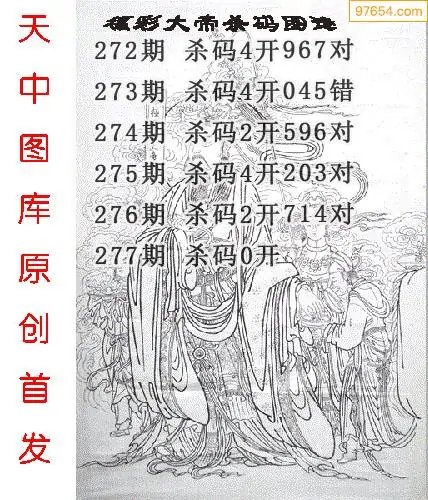 97654.com
福彩大帝杀码图谜
272期 杀码4开967对
273期 杀码4开045错
274期 杀码2开596对
275期 杀码4开203对
276期 杀码2开714对
277期 杀码0开
天中图库原创首发